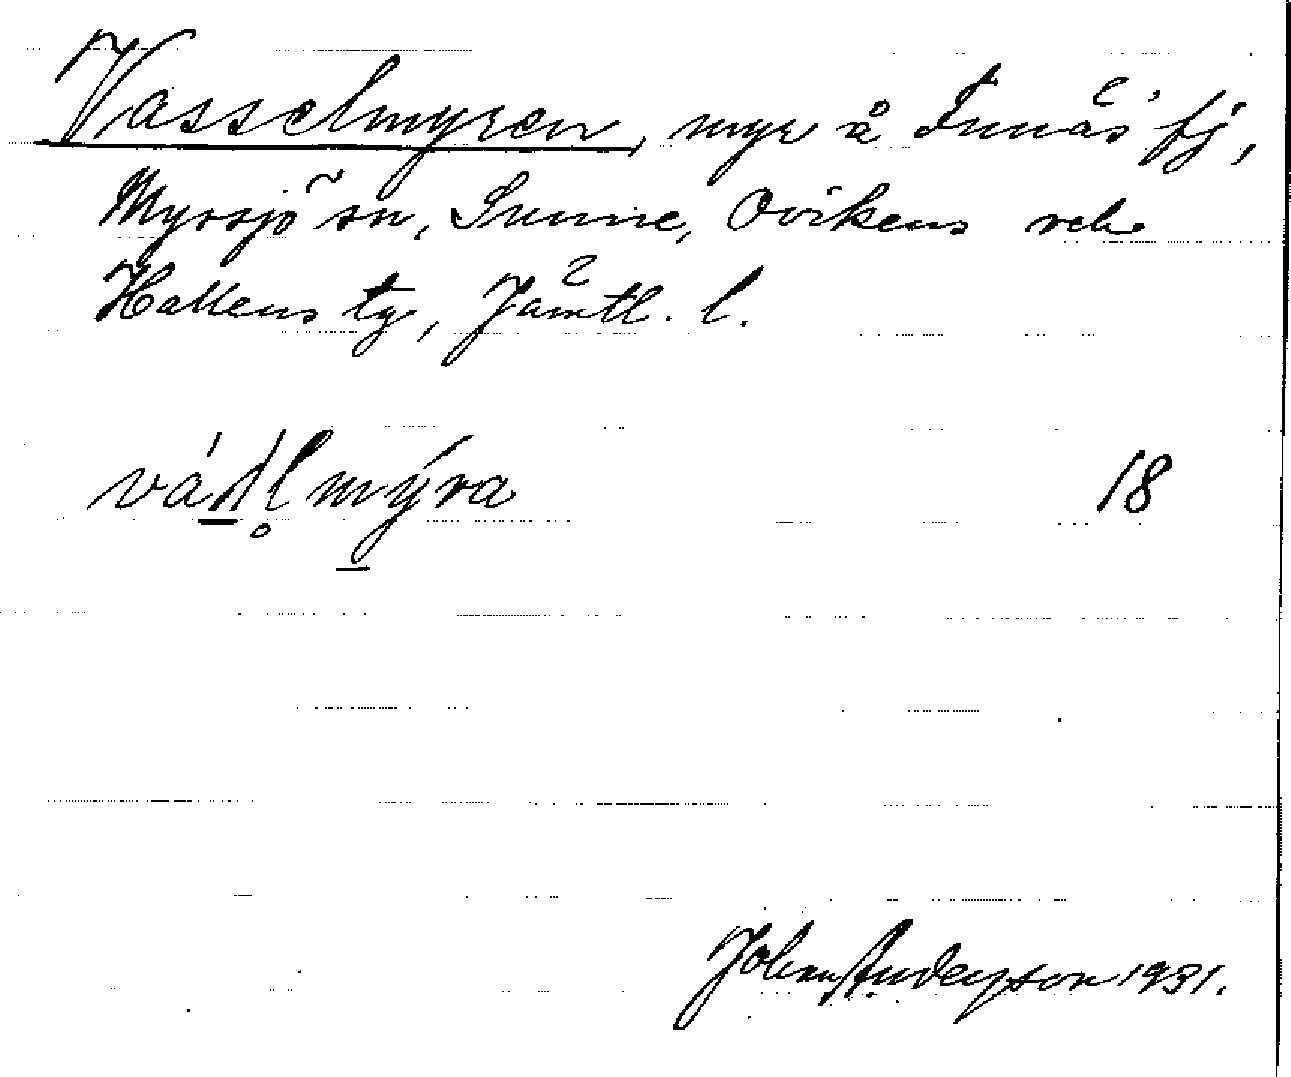 Vasselmyren, myr å Funäs' fj,
Myrsjö sn, Sunne, Ovikens och
Hallens tg, Jämtl. l.
mýra 18
Johan Anderson 1931.